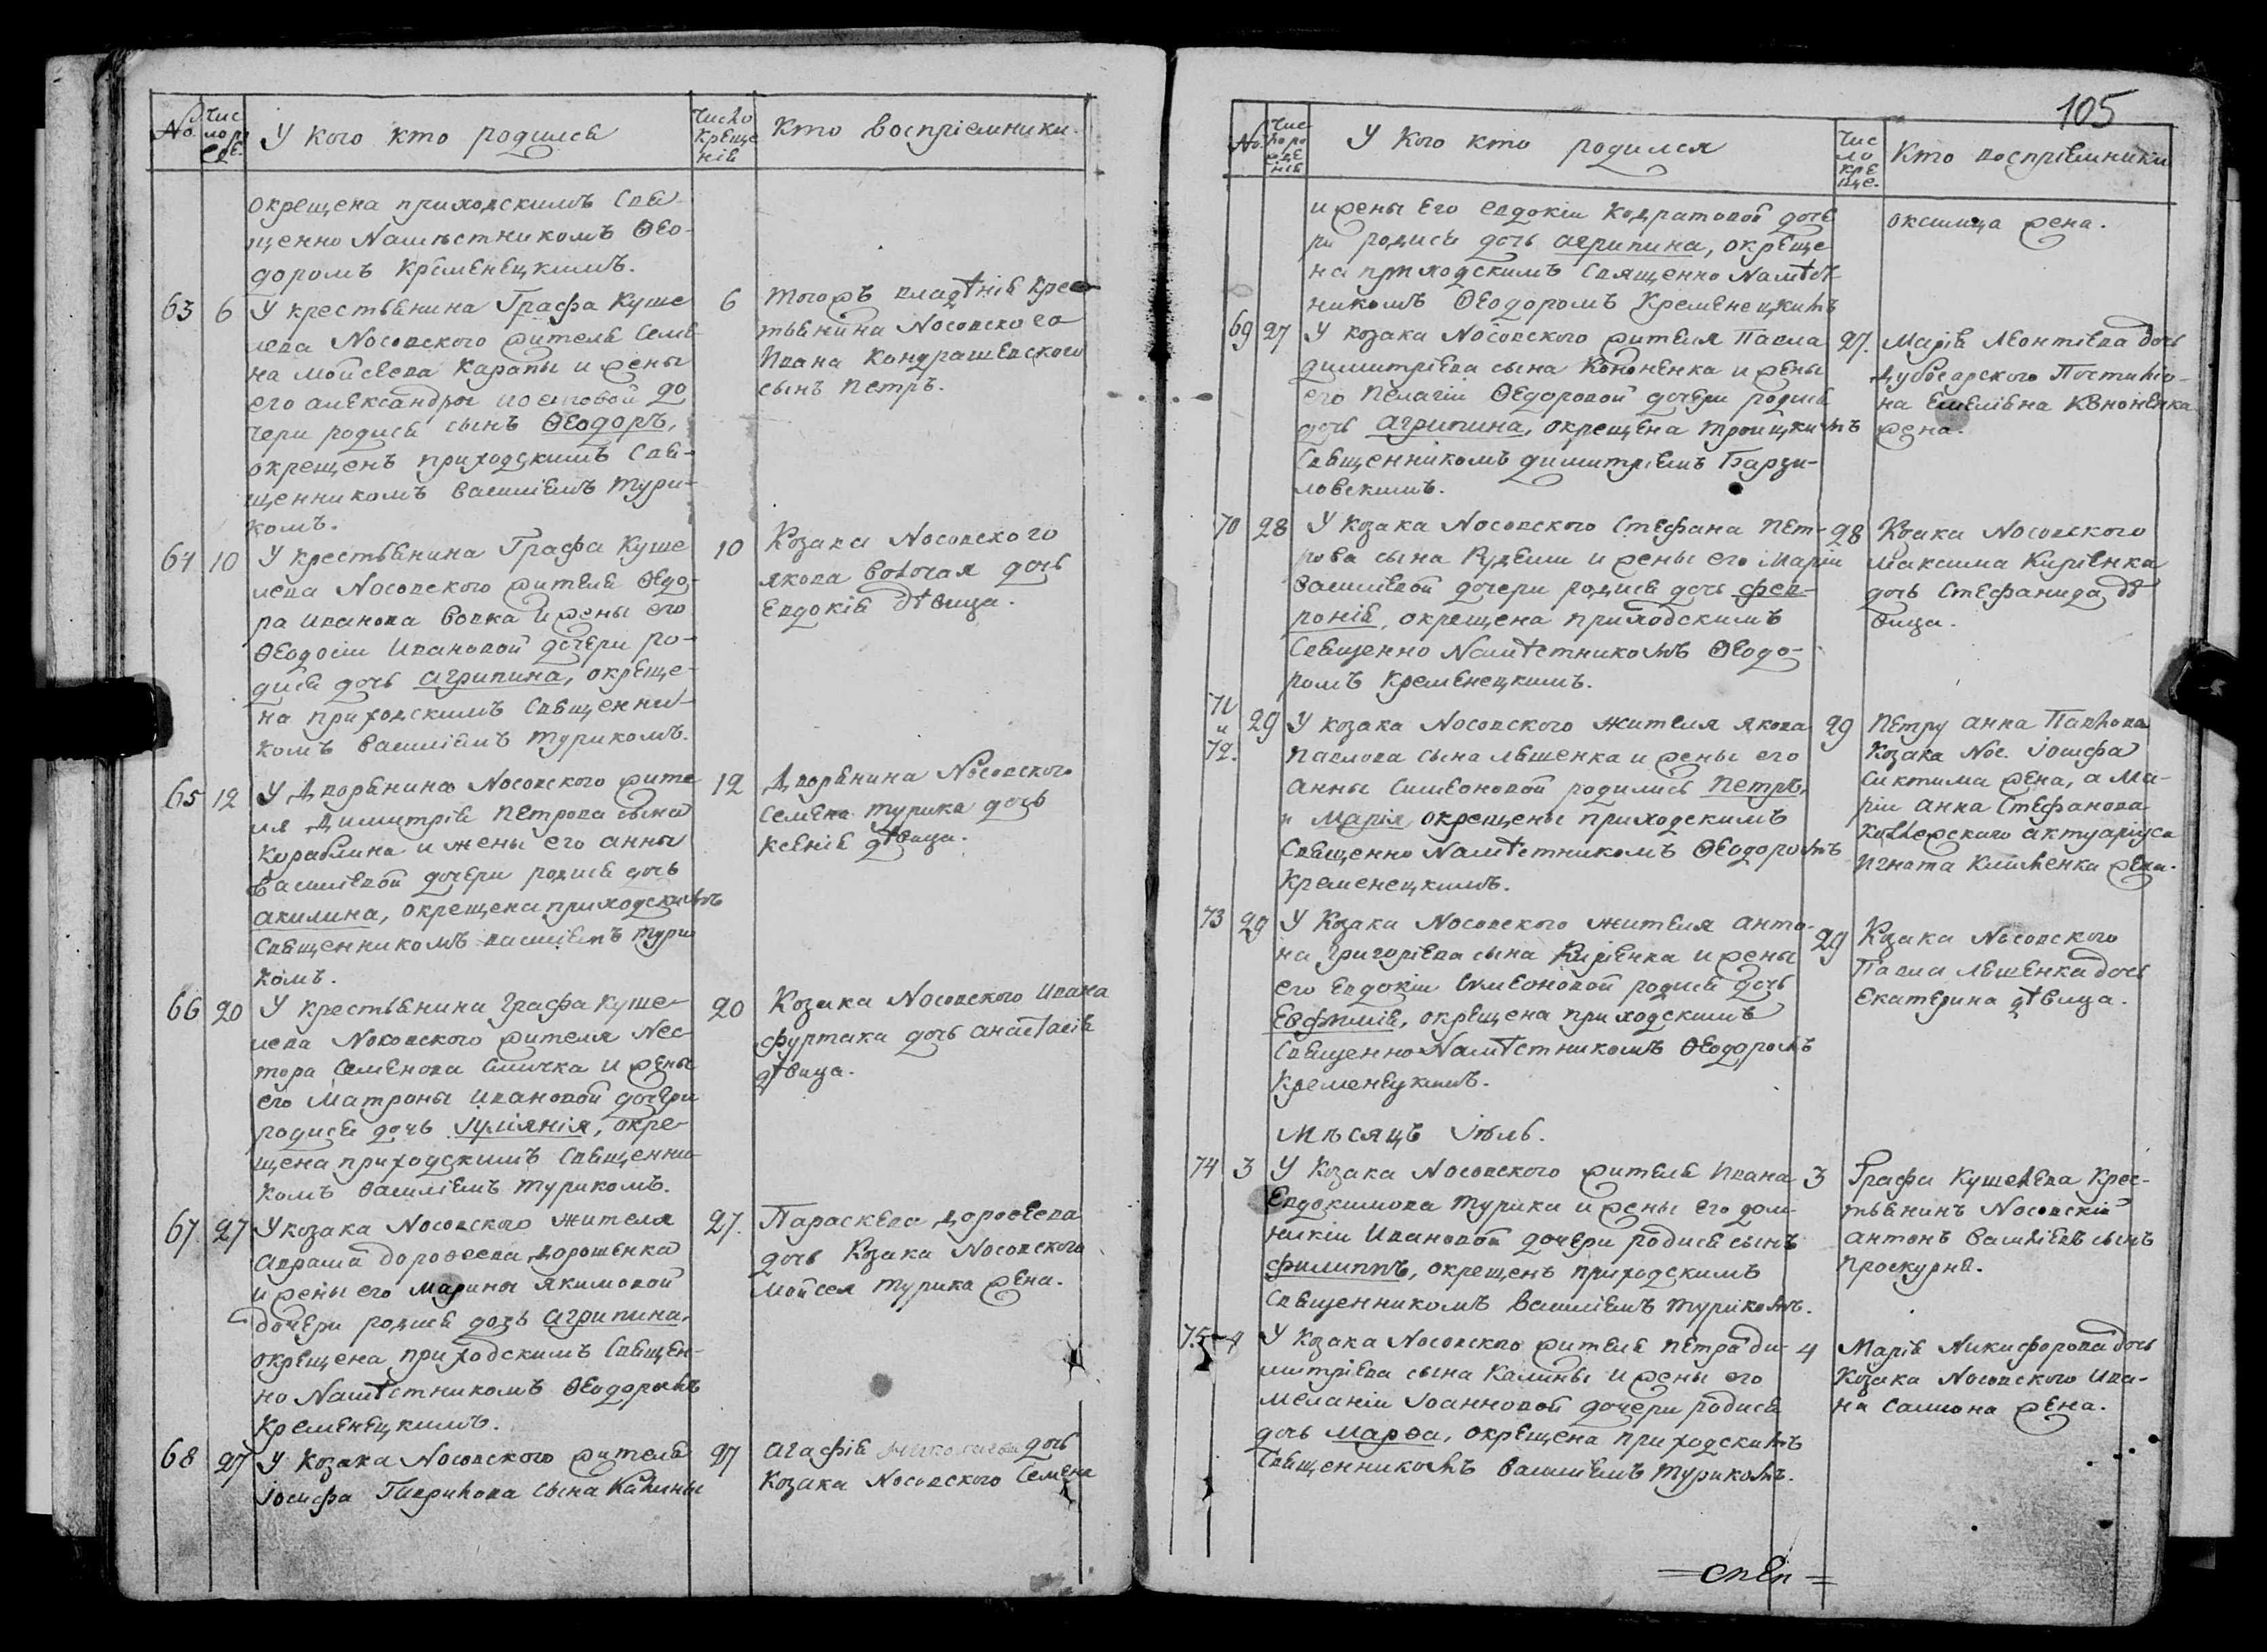 No.
Чис
ло ро
жде.
У кого кто родился
Число
креще
нія
Кто воспріемники.
окрещена приходскимъ Свя-
щенно Намѣстникомъ Ѳео-
доромъ Кременецкимъ.
63 6 У крестьянина Графа Куше
лева Носовского жителя Семе
на Мойсеева Карапы и жены
его александры
чери родися сынъ Ѳеодоръ,
окрещенъ приходскимъ Свя-
щенникомъ василіемъ тури-
комъ.
6 тогожъ владѣнія крес
тьянина Носовского
Ивана Кондрашевского
сынъ петръ.
64 10 У крестьянина Графа Куше
лева Носовского жителя Ѳедо-
ра иванова вовка и жены его
Ѳеодосіи Ивановой дочери ро-
дися дочь агрипина, окреще-
на приходскимъ Священни-
комъ василіемъ турикомъ.
10 Козака Носовского
якова дочь
евдокія дѣвица.
65 12 У Дворянина Носовского жите
ля Димитрія Петрова сына
Кораблина и жены его анны
василіевой дочери родися дочь
акилина, окрещена приходскимъ
Священникомъ василіемъ тури
комъ.
12 Дворянина Носовского
Семена турика дочь
ксенія дѣвица.
66 20 У крестьянина Графа Куше-
лева Носовского жителя Нес-
тора Семенова Симчка и жены
его Матроны Ивановой дочери
родися дочь Іуліянія, окре-
щена приходскимъ Священни-
комъ василіемъ турикомъ.
20 Козака Носовского Ивана
фуртака дочь анастасія
дѣвица.
67 27 У козака Носовского жителя
аврама дорофеева дорошенка
и жены его Марины якимовой
дочери родися дочь агрипина,
окрещена приходскимъ Священ-
но Намѣстникомъ Ѳеодоромъ
Кременецкимъ.
27. Параскева дорофеева
дочь козака Носовского
Мойсея турика жена.
68 27 У козака Носовского жителя
Іосифа Гаврилова сына Калины
27 агафія николаева дочь
Козака Носовского Семена
105
No.
Чис
ло ро
жде
нія
У кого кто родился
Чис
ло
кре
ще.
Кто воспріемники
и жены его евдокіи кодратовой доче
ри родися дочь агрипина, окреще
на приходскимъ Священно Намѣст
никомъ Ѳеодоромъ Кременецкимъ
оксимца жена.
69 27 У козака Носовского жителя Павла
димитріева сына Кононенка и жены
его Пелагіи Ѳедоровой дочери родися
дочь агрипина, окрещена троицкимъ
Священникомъ димитріемъ Барзи-
ловскимъ.
27. Марія Леонтіева дочь
дубосарского Постиліо-
на емеліяна Кононенка
жена.
70 28 У козака Носовского Стефана Пет-
рова сына Рудеши и жены его маріи
василіевой дочери родися дочь фев-
ронія, окрещена приходскимъ
Священно Намѣстникомъ Ѳеодо-
ромъ Кременецкимъ.
28 Козака Носовского
максима Киріенка
дочь Стефанида дѣ
вица.
71
и
72.
29 У козака Носовского жителя якова
павлова сына ляшенка и жены его
анны Симеоновой родились Петръ,
и Марія окрещены приходскимъ
Священно Намѣстникомъ Ѳеодоромъ
Кременецкимъ.
29 Петру анна Павлова
козака Нос. Іосифа
Сиктима жена, а Ма-
ріи анна Стефанова
Коллежского актуаріуса
Игната Клименка жена.
73 29 У козака Носовского жителя анто-
на григоріева сына Киріенка и жены
его евдокіи Симеоновой родися дочь
евфимія, окрещена приходскимъ
Священно Намѣстникомъ Ѳеодоромъ
Кременецкимъ.
29 Козака Носовского
Павла ляшенка дочь
екатерина дѣвица.
Мѣсяцъ Іюль.
74 3 У козака Носовского жителя Ивана
евдокимова турика и жены его дом-
никіи ивановой дочери родися сынъ
филиппъ, окрещенъ приходскимъ
Священникомъ василіемъ туриком.
3 Графа Кушелева крес-
тьянинъ Носовскій
антонъ василіевъ сынъ
Проскурня.
75 4 У козака Носовского жителя петра ди-
митріева сына Калины и жены его
меланіи Іоанновой дочери родися
дочь марѳа, окрещена приходскимъ
Священникомъ василіемъ туриком.
4 Марія Никифорова дочь
козака Носовского ива-
на Самсона жена.